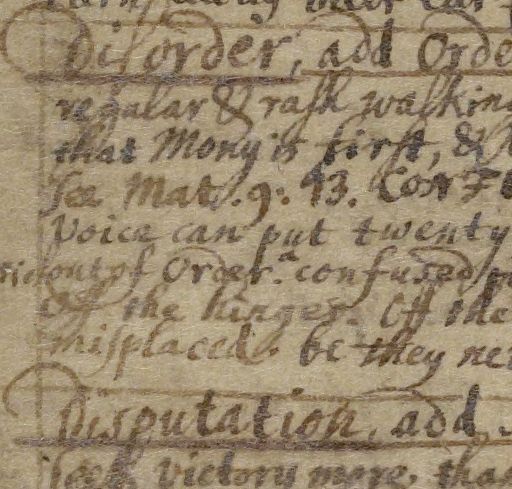 Disorder, add Orde
regular & rash walking
that Mony is first, &
see Mat. 9. 13.
Voice can put twenty
out of Order. a confused
off the hinges. Off the
misplaced. be they ne
Disputation, add
seek victory more, than